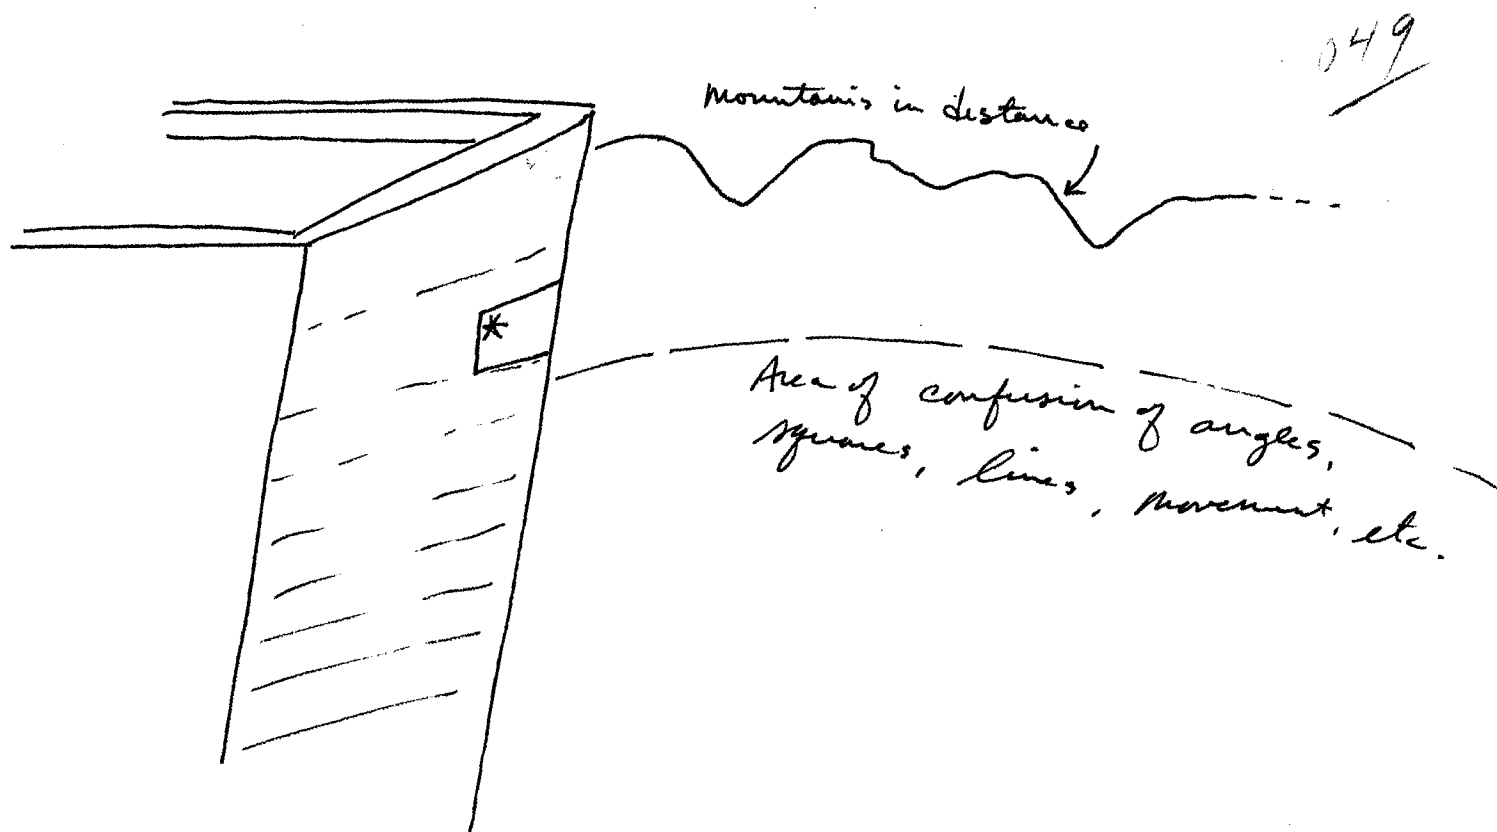 049
mountains in distance
*
Area of confusion of angles,
squares, lines, movement, etc.